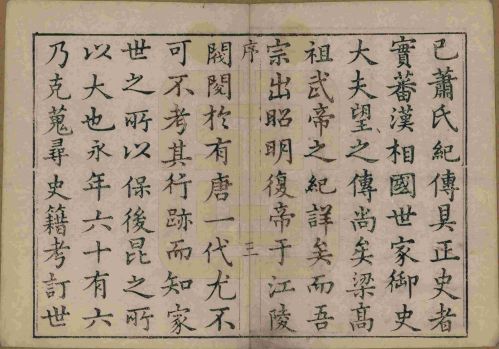 已蕭氏紀傳具正史者
實蕃漢相國世家御史
大夫望之傳尚矣梁高
祖武帝之紀詳矣而吾
宗出昭明復帝于江陵
序 三
閥閱於有唐一代尤不
可不考其行跡而知家
世之所以保後昆之所
以大也永年六十有六
乃克蒐尋史籍考訂世